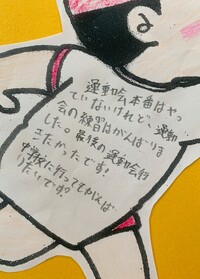 運動会本番はやっ
ていないけれど、運動
会の練習はがんばりま
した。最後の運動会行
きたかったです!
中学校に行ってもがんば
りたいです。